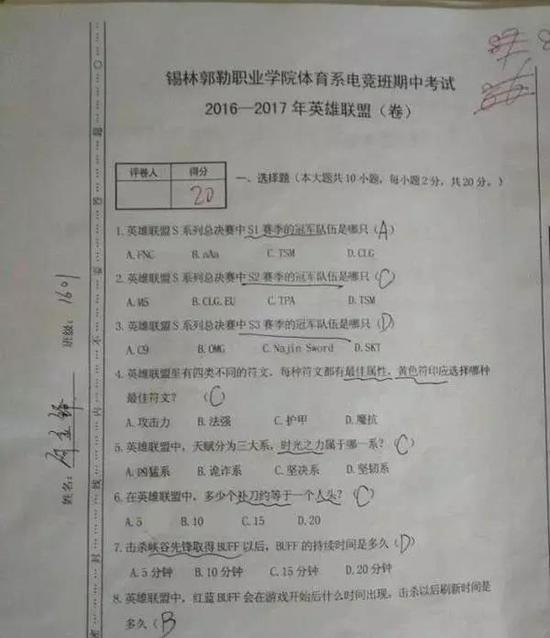 锡林郭勒职业学院体育系电竞班期中考试
2016—2017 年英雄联盟（卷）
评卷人 得分
20
一、选择题（本大题共 10 小题，每小题 2 分，共 20 分。）
1. 英雄联盟 S 系列总决赛中 S1 赛季的冠军队伍是哪只（A）
A. FNC B. aAa C. TSM D. CLG
2. 英雄联盟 S 系列总决赛中 S2 赛季的冠军队伍是哪只（C）
A. M5 B. CLG. EU C. TPA D. TSM
3. 英雄联盟 S 系列总决赛中 S3 赛季的冠军队伍是哪只（D）
A. C9 B. OMG C. Najin Sword D. SKT
4. 英雄联盟里有四类不同的符文，每种符文都有最佳属性，黄色符印应选择哪种
最佳符文？（C）
A. 攻击力 B. 法强 C. 护甲 D. 魔抗
5. 英雄联盟中，天赋分为三大系，时光之力属于哪一系？（C）
A. 凶猛系 B. 诡诈系 C. 坚决系 D. 坚韧系
6. 在英雄联盟中，多少个补刀约等于一个人头？（C）
A. 5 B. 10 C. 15 D. 20
7. 击杀峡谷先锋取得 BUFF 以后，BUFF 的持续时间是多久（D）
A. 5 分钟 B. 10 分钟 C. 15 分钟 D. 20 分钟
8. 英雄联盟中，红蓝 BUFF 会在游戏开始后什么时间出现，击杀以后刷新时间是
多久（B
班级： 1601
姓名：
封 线 内 不 要 答 题